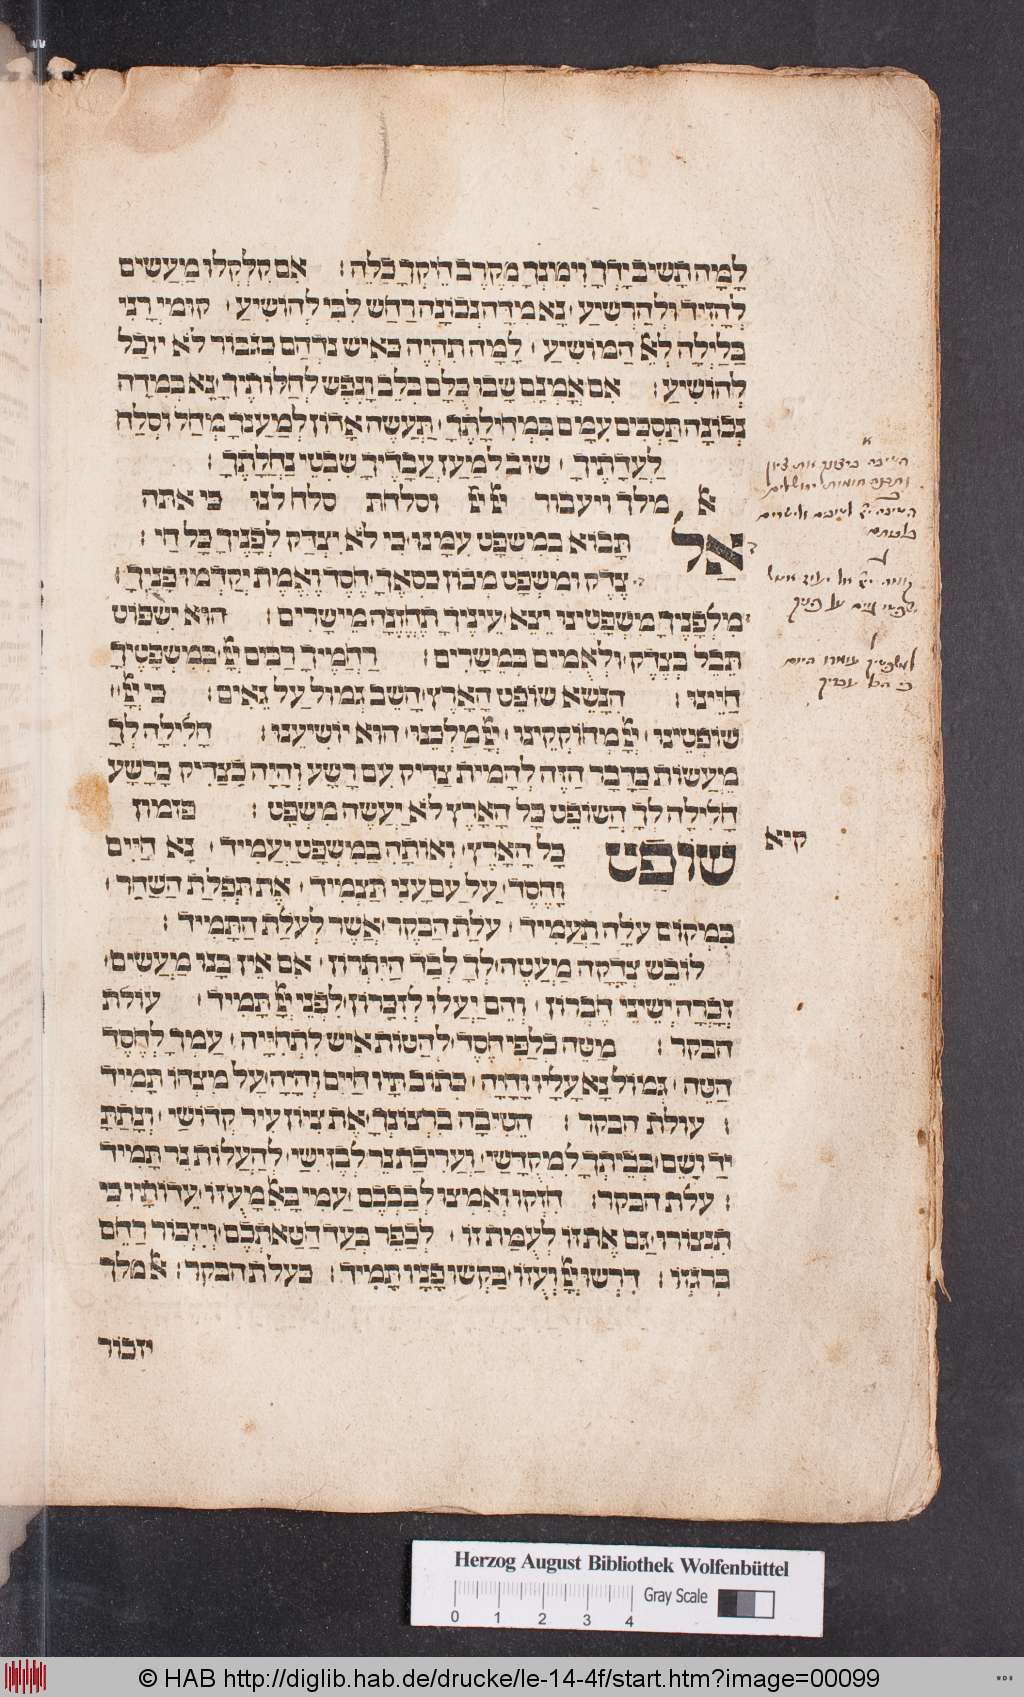 לָמָּה תָשִׁיב יָדְךָ וִימִינְךָ מִקֶּרֶב חֵיקְךָ כַלֵּה : אִם קִלְקְלוּ מַעֲשִׂים
לְהָזִיד וּלְהַרְשִׁיעַ נָא מִדָּה נְכוֹנָה רַחַשׁ לִבִּי לְהוֹשִׁיעַ קוּמִי רָנִּי
בַּלַּיְלָה לְאֵ הַמוֹשִׁיעַ לָמָּה תִהְיֶה כְּאִישׁ נִדְהָם כְּגִבּוֹר לֹא יוּכַל
לְהוֹשִׁיעַ : אִם אָמְנָם שָׁבוּ בְּלֵב וָנֶפֶשׁ לְחַלּוֹתֶיךָ נָא בְמִדָּה
נְכוֹנָה תַסְכִּים עִמָּם בִּמְחִילָתֶךָ תַּעֲשֶׂה אָרוֹן לְמַעַנְךָ מְחַל וּסְלַח
לַעֲדָתֶיךָ שׁוּב לְמַעַן עֲבָדֶיךָ שִׁבְטֵי נַחֲלָתֶךָ :
א מלך ויעבור יי יי וסלחת סלח לנו כי אתה
אַל תָּבוֹא בְמִשְׁפָּט עִמָּנוּ כִּי לֹא יִצְדַּק לְפָנֶיךָ כָּל חַי :
צֶדֶק וּמִשְׁפָּט מְכוֹן כִּסְאֶךָ חֶסֶד וֶאֱמֶת יְקַדְּמוּ פָנֶיךָ :
מִלְּפָנֶיךָ מִשְׁפָּטֵינוּ יֵצֵא עֵינֶיךָ תֶּחֱזֶינָה מֵישָׁרִים : הוּא יִשְׁפּוֹט
תֵּבֵל בְּצֶדֶק וּלְאֻמִּים בְּמֵשָׁרִים : רַחֲמֶיךָ רַבִּים יְיָ כְּמִשְׁפָּטֶיךָ
חַיֵּינוּ : הִנָּשֵׂא שׁוֹפֵט הָאָרֶץ הָשֵׁב גְּמוּל עַל גֵּאִים : כִּי יְיָ
שׁוֹפְטֵינוּ יְיָ מְחוֹקְקֵינוּ יְיָ מַלְכֵּנוּ הוּא יוֹשִׁיעֵנוּ : חָלִילָה לְּךָ
מֵעֲשׂוֹת כַּדָּבָר הַזֶּה לְהָמִית צַדִּיק עִם רָשָׁע וְהָיָה כַצַּדִּיק כָּרָשָׁע
חָלִילָה לְּךָ הֲשׁוֹפֵט כָּל הָאָרֶץ לֹא יַעֲשֶׂה מִשְׁפָּט : פזמון
קיא
שׁוֹפֵט כָּל הָאָרֶץ וְאוֹתָהּ בְּמִשְׁפָּט יַעֲמִיד נָא חַיִּים
וָחֶסֶד עַל עַם עָנִי תַצְמִיד אֶת תְּפִלַּת הַשַּׁחַר
בִּמְקוֹם עֹלָה תַעֲמִיד עֹלַת הַבֹּקֶר אֲשֶׁר לְעֹלַת הַתָּמִיד :
לוֹבֵשׁ צְדָקָה מַעֲטֶה לְךָ לְבַד הַיִּתְרוֹן אִם אֵין בָּנוּ מַעֲשִׂים
זָכְרָה יְשֵׁינֵי חֶבְרוֹן וְהֵם יַעֲלוּ לְזִכָּרוֹן לִפְנֵי יְיָ תָּמִיד : עולת
הבקר : מַטֵּה כְּלַפֵּי חֶסֶד לְהַטּוֹת אִישׁ לִתְחִיָּיה עַמְּךָ לְחֶסֶד
הַטֵּה גְּמוֹל נָא עָלָיו וָחָיָה כְּתוֹב תָּיו חַיִּים וְהָיָה עַל מִצְחוֹ תָּמִיד
: עולת הבקר : הֵטִיבָה בִרְצוֹנְךָ אֶת צִיּוֹן עִיר קְדוֹשַׁי וְנָתַתָּ
יָד וָשֵׁם בְּבֵיתְךָ לִמְקֻדָּשַׁי וַעֲרִיכַת נֵר לְבֶן יִשַׁי לְהַעֲלוֹת נֵר תָּמִיד
: עולת הבקר : חִזְקוּ וְאִמְצוּ לְבַבְכֶם עַמִּי בָּאֵ מָעֻזּוֹ עֵדוֹתָיו כִּי
תִנְצוֹרוּ גַּם אֶת זוֹ לְעֻמַּת זוֹ לְכַפֵּר בְּעַד חַטַּאתְכֶם וְיִזְכּוֹר רַחֵם
בְּרָגְזוֹ : דִּרְשׁוּ יְיָ וְעֻזּוֹ בַּקְּשׁוּ פָנָיו תָּמִיד : בעלת הבקר : א מלך
יזכור
Herzog August Bibliothek Wolfenbüttel
Gray Scale
0 1 2 3 4
© HAB http://diglib.hab.de/drucke/le-14-4f/start.htm?image=00099